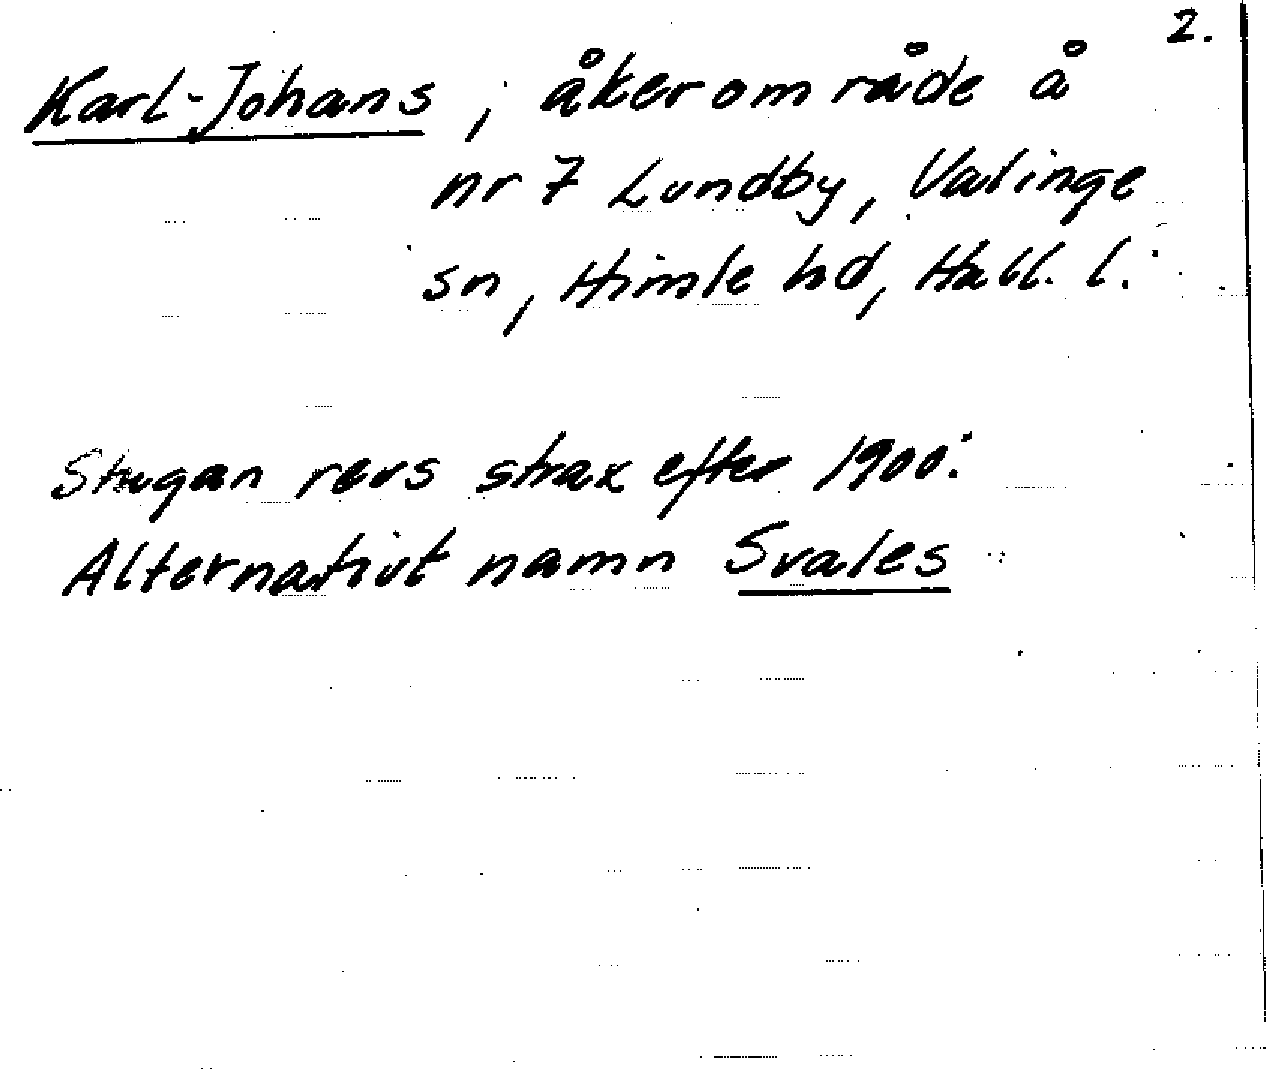 2.
Karl-Johans, åkerområde å
nr 7 Lundby, Valinge
sn, Himle hd, Hall. l.
Stugan revs strax efter 1900.
Alternativt namn Svales